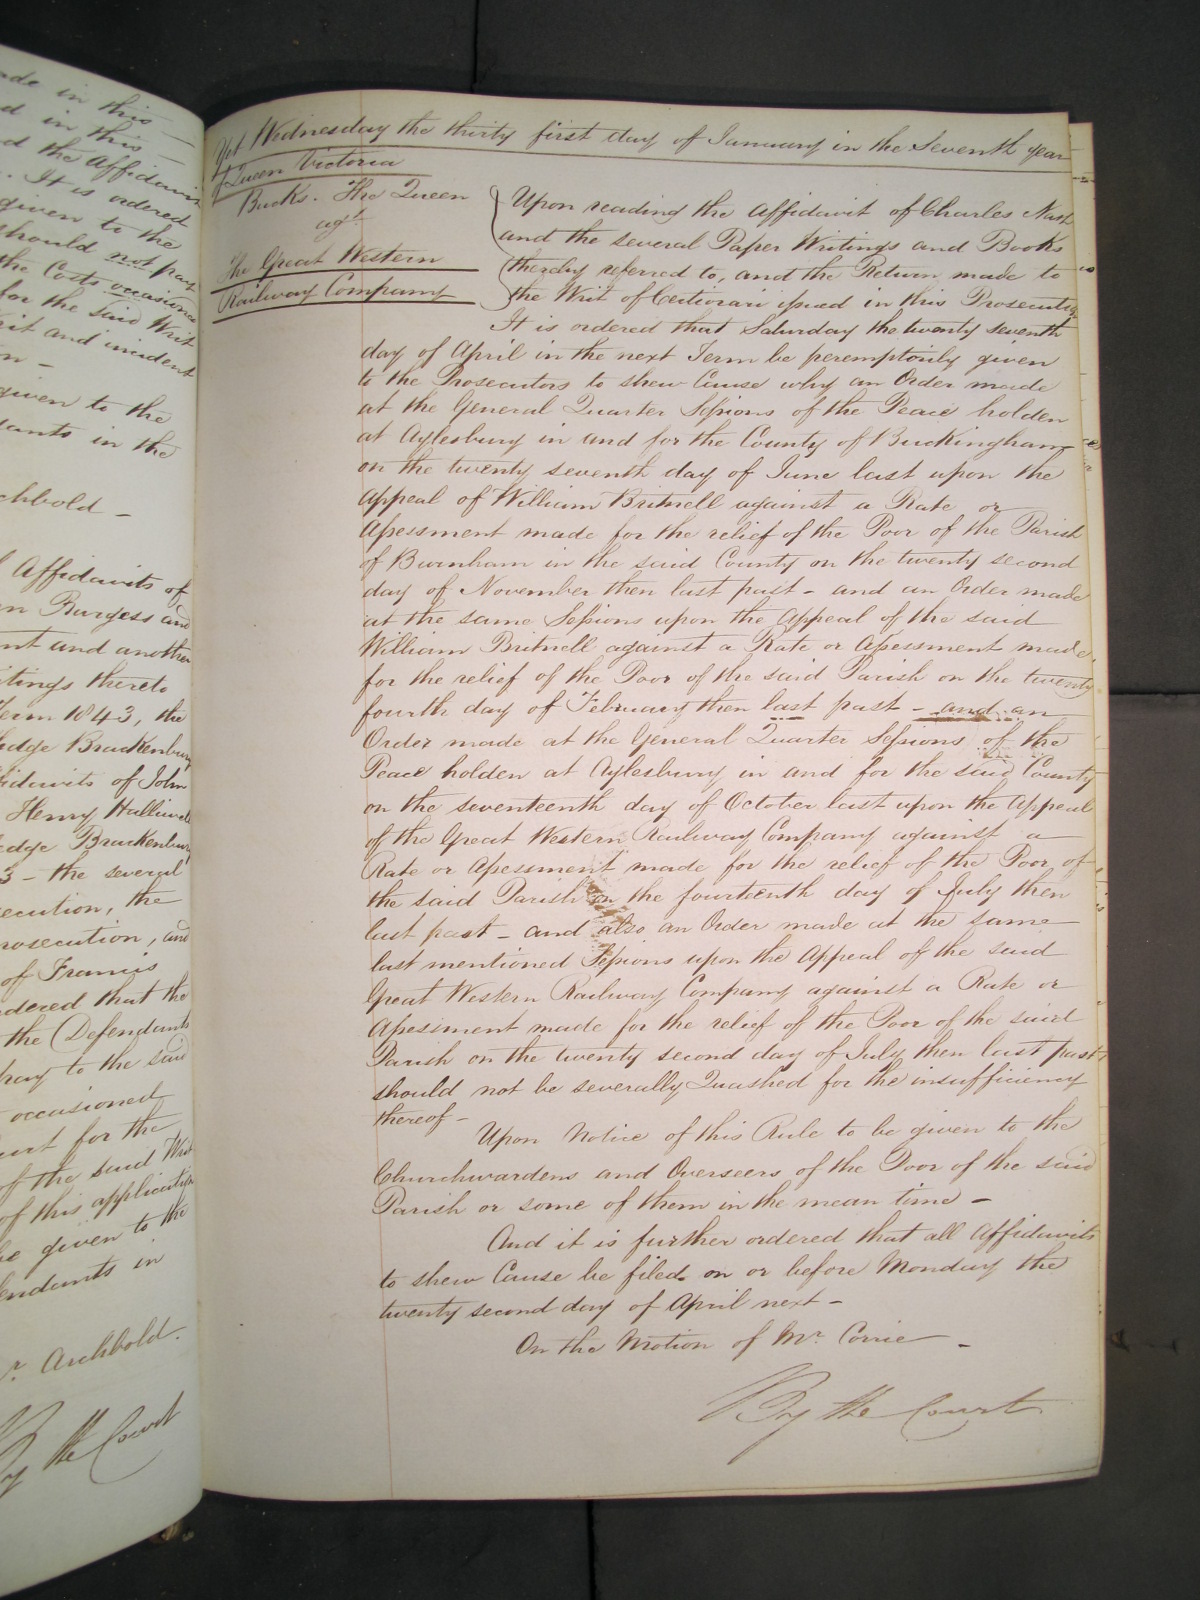 ade in this
d in this
d the Affidavit
. It is ordered
given to the
should not pay
the Costs occasioned
for the said Writ
it and incident
n -
given to the
dants in the
chbold -
l Affidavits of
n Burgess and
nt and another
itings thereto
Term 1843, the
udge Brackenbury
fidavits of John
Henry Halliwell
edge Brackenbury
3 - the several
ecution, the
rosecution, and
of Francis
dered that the
the Defendants
pay to the said
occasioned
urt for the
of the said Writ
of this application
be given to the
endants in
r. Archbold.
By the Court
Yet Wednesday the thirty first day of January in the Seventh year
of Queen Victoria
Bucks. The Queen
agt.
The Great Western
Railway Company
Upon reading the Affidavit of Charles Nash
and the several Paper Writings and Books
thereby referred to, and the Return made to
the Writ of Certiorari issued in this Prosecution
It is ordered that Saturday the twenty seventh
day of April in the next Term be peremptorily given
to the Prosecutors to shew Cause why an Order made
at the General Quarter Sessions of the Peace holden
at Aylesbury in and for the County of Buckingham
on the twenty seventh day of June last upon the
Appeal of William Britnell against a Rate or
Assessment made for the relief of the Poor of the Parish
of Burnham in the said County on the twenty second
day of November then last past - and an Order made
at the same Sessions upon the Appeal of the said
William Britnell against a Rate or Assessment made
for the relief of the Poor of the said Parish on the twenty
fourth day of February then last past - and an
Order made at the General Quarter Sessions of the
Peace holden at Aylesbury in and for the said County
on the seventeenth day of October last upon the Appeal
of the Great Western Railway Company against a
Rate or Assessment made for the relief of the Poor of
the said Parish on the fourteenth day of July then
last past - and also an Order made at the same
last mentioned Sessions upon the Appeal of the said
Great Western Railway Company against a Rate or
Assessment made for the relief of the Poor of the said
Parish on the twenty second day of July then last past
should not be severally Quashed for the insufficiency
thereof -
Upon Notice of this Rule to be given to the
Churchwardens and Overseers of the Poor of the said
Parish or some of them in the mean time -
And it is further ordered that all Affidavits
to shew Cause be filed on or before Monday the
twenty second day of April next -
On the Motion of Mr. Corrie -
By the Court